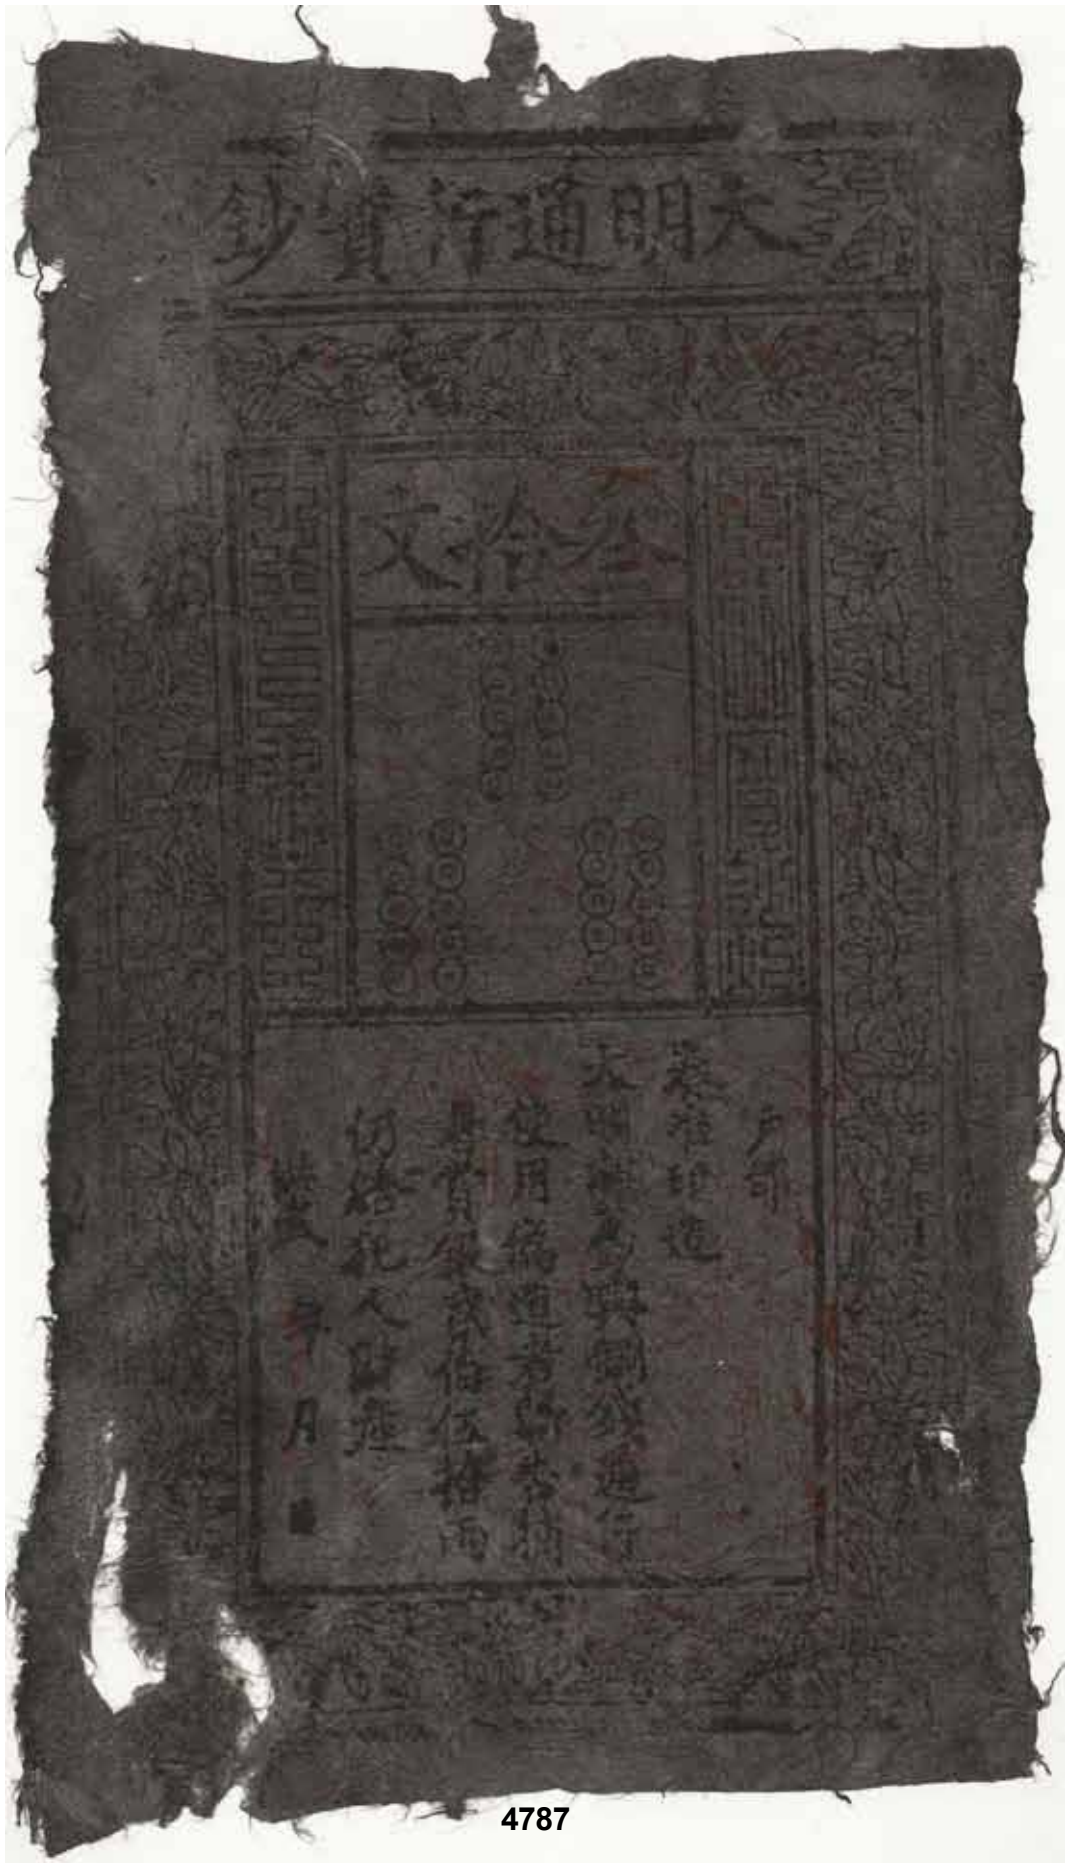 大明通行寶鈔
叁拾文
大明寶鈔
天下通行
戶部
奏准印造
大明寶鈔與銅錢通行
使用偽造者斬告捕
者賞銀貳佰伍拾兩
仍給犯人財產
洪武 年 月 日
4787